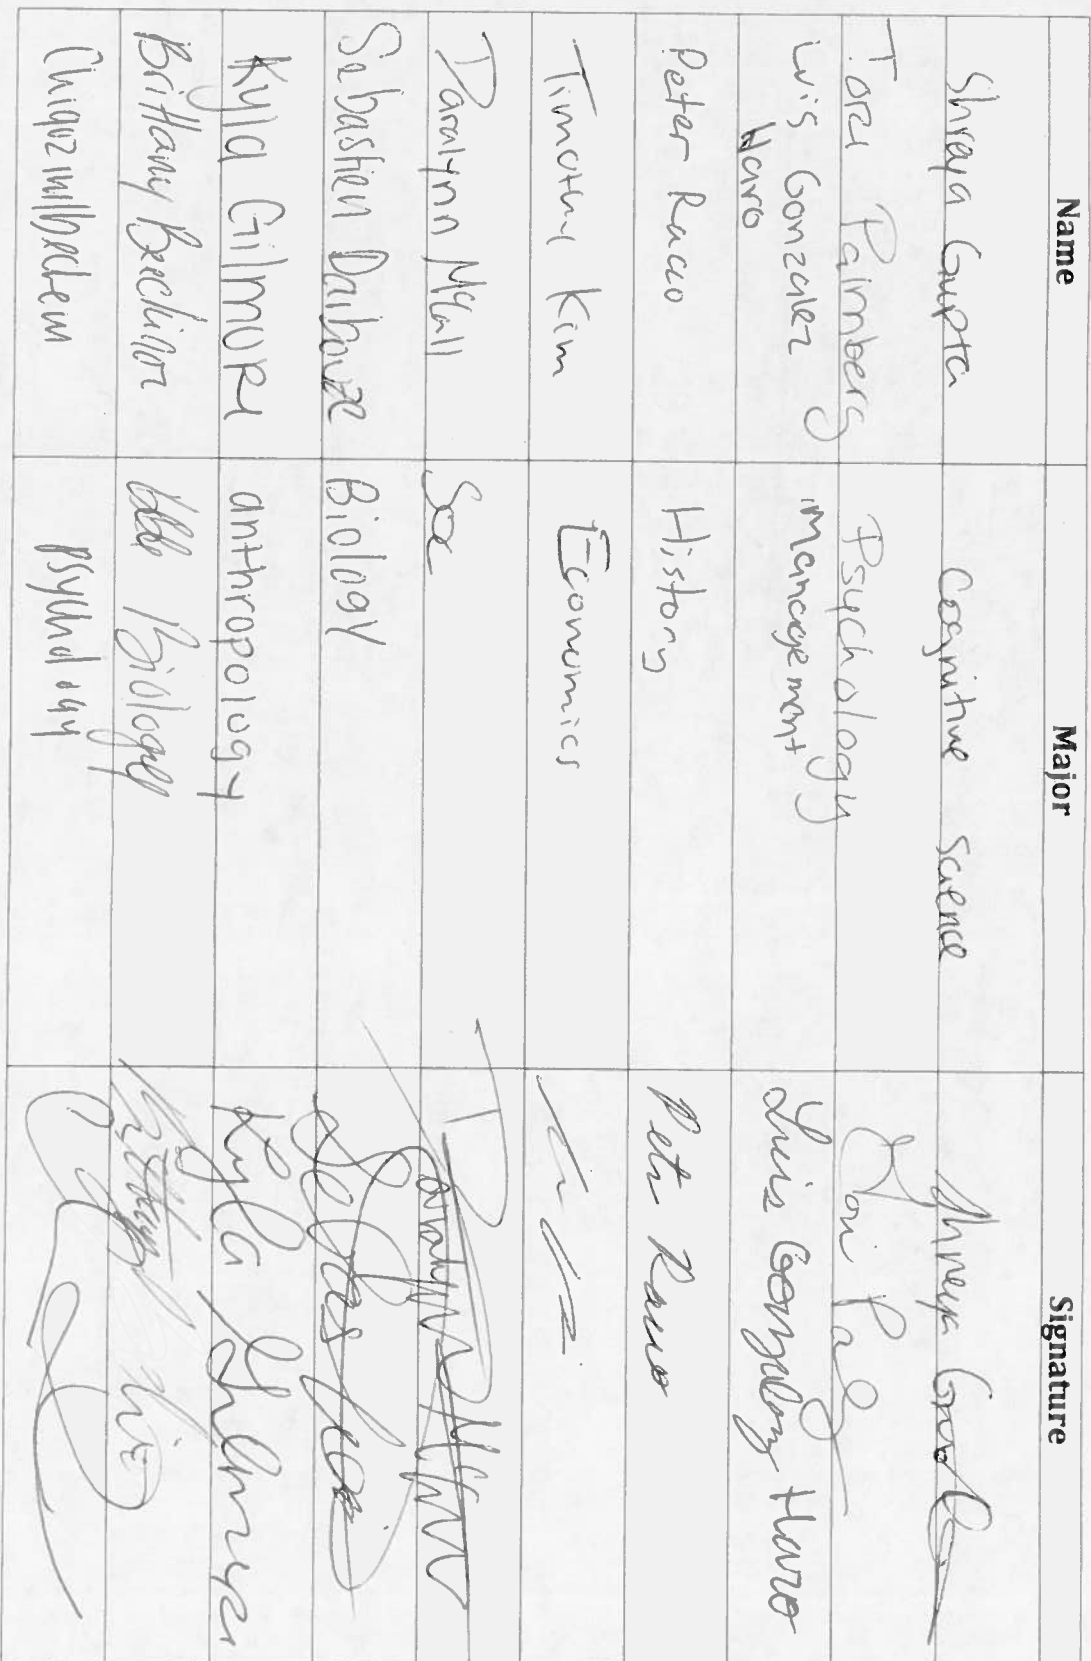 Name Major Signature
Shreya Gupta Cognitive Science Shreya Gupta
Tori Palmberg Psychology Tori
Luis Gonzalez Haro management Luis Gonzalez Haro
Peter Racco History Peter Racco
Timothy Kim Economics
Daralynn McCall Soc Daralynn
Sebastien Biology
Kyla Gilmore anthropology Kyla Gilmore
Brittany Biology Brittany
Psychology